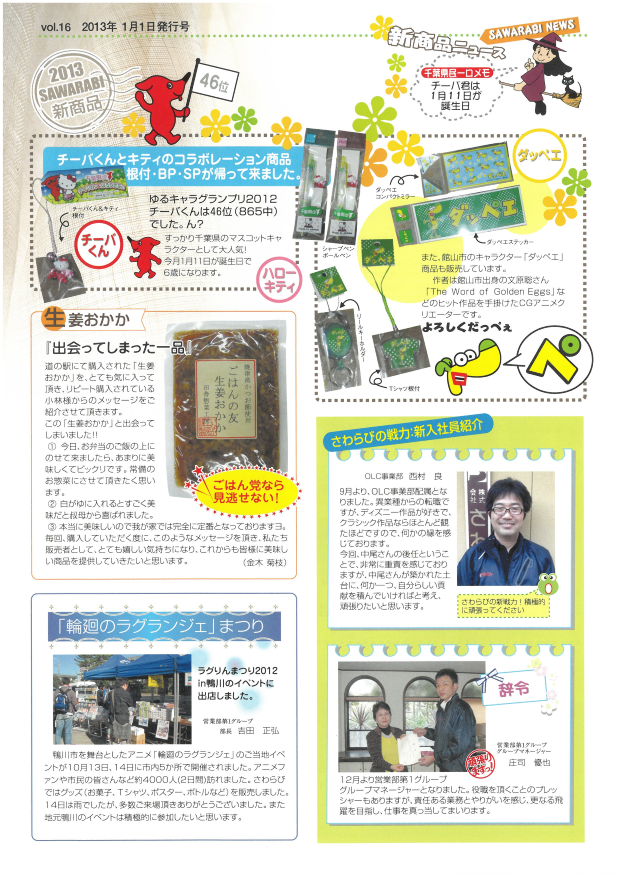 vol.16 2013年 1月1日発行号
新商品ニュース
SAWARABI NEWS
千葉県民一口メモ
チーバ君は
1月11日が
誕生日
2013
SAWARABI
新商品
46位
チーバくんとキティのコラボレーション商品
根付・BP・SPが帰って来ました。
チーバくん&キティ
根付
チーバ
くん
ゆるキャラグランプリ2012
チーバくんは46位(865中)
でした。ん?
すっかり千葉県のマスコットキャ
ラクターとして大人気!
今月1月11日が誕生日で
6歳になります。
ハロー
キティ
シャープペン
ボールペン
ダッペエ
ダッペエ
コンパクトミラー
ダッペエ
ダッペエステッカー
また、館山市のキャラクター「ダッペエ」
商品も販売しています。
作者は館山市出身の文原聡さん
「The Word of Golden Eggs」な
どのヒット作品を手掛けたCGアニメク
リエーターです。
よろしくだっぺぇ
リールキーホルダー
Tシャツ根付
ペ
生姜おかか
『出会ってしまった一品』
道の駅にて購入された「生姜
おかか」を、とても気に入って
頂き、リピート購入されている
小林様からのメッセージをご
紹介させて頂きます。
この「生姜おかか」と出会って
しまいました!!
① 今日、お弁当のご飯の上に
のせて来ましたら、あまりに美
味しくてビックリです。常備の
お惣菜にさせて頂きたく思い
ます。
② 白がゆに入れるとすごく美
味だと叔母から喜ばれました。
③ 本当に美味しいので我が家では完全に定番となっておりますヨ。
毎回、購入していただく度に、このようなメッセージを頂き、私たち
販売者として、とても嬉しい気持ちになり、これからも皆様に美味し
い商品を提供していきたいと思います。 (金木 菊枝)
焼津産かつお節使用
ごはんの友
生姜おかか
田舎惣菜
ごはん党なら
見逃せない!
さわらびの戦力:新入社員紹介
OLC事業部 西村 良
9月より、OLC事業部配属とな
りました。異業種からの転職で
すが、ディズニー作品が好きで、
クラシック作品ならほとんど観
たほどですので、何かの縁を感
じております。
今回、中尾さんの後任というこ
とで、非常に重責を感じており
ますが、中尾さんが築かれた土
台に、何か一つ、自分らしい貢
献を積んでいければと考え、
頑張りたいと思います。
さわらびの新戦力!積極的
に頑張ってください
「輪廻のラグランジェ」まつり
ラグりんまつり2012
in鴨川のイベントに
出店しました。
営業部第1グループ
部長 吉田 正弘
鴨川市を舞台としたアニメ「輪廻のラグランジェ」のご当地イベ
ントが10月13日、14日に市内5か所で開催されました。アニメフ
ァンや市民の皆さんなど約4000人(2日間)訪れました。さわらび
ではグッズ(お菓子、Tシャツ、ポスター、ボトルなど)を販売しました。
14日は雨でしたが、多数ご来場頂きありがとうございました。また
地元鴨川のイベントは積極的に参加したいと思います。
辞令
頑張り
ますっ!
営業部第1グループ
グループマネージャー
庄司 優也
12月より営業部第1グループ
グループマネージャーとなりました。役職を頂くことのプレッ
シャーもありますが、責任ある業務とやりがいを感じ、更なる飛
躍を目指し、仕事を真っ当してまいります。